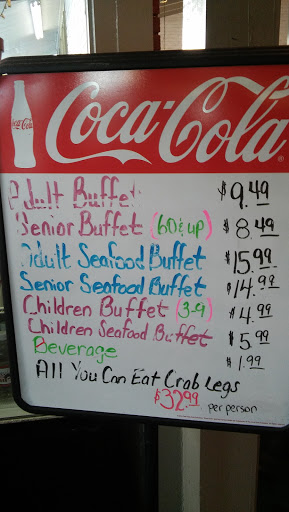 Coca-Cola
Coca-Cola
Adult Buffet $9.49
Senior Buffet (60 & up) $8.49
Adult Seafood Buffet $15.99
Senior Seafood Buffet $14.99
Children Buffet (3-9) $4.99
Children Seafood Buffet $5.99
Beverage $1.99
All You Can Eat Crab Legs
$32.99 per person